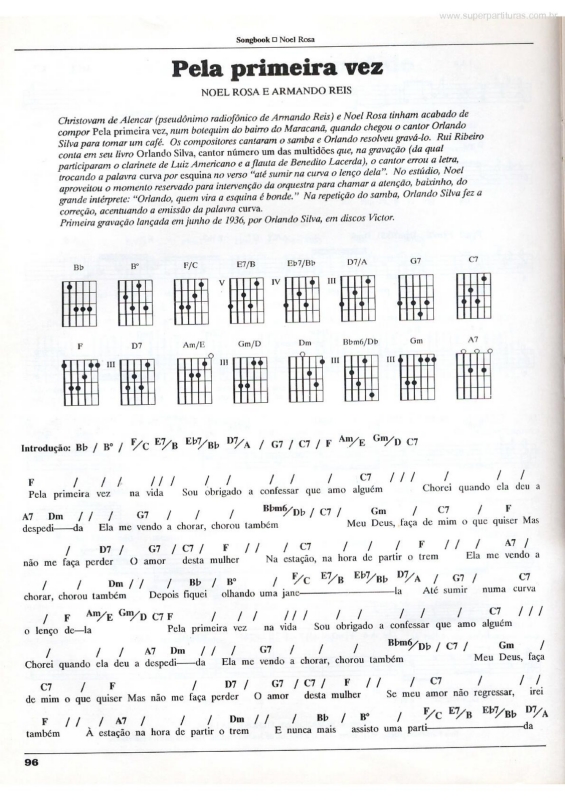 www.superpartituras.com.br
Songbook □ Noel Rosa
Pela primeira vez
NOEL ROSA E ARMANDO REIS
Christovam de Alencar (pseudônimo radiofônico de Armando Reis) e Noel Rosa tinham acabado de
compor Pela primeira vez, num botequim do bairro do Maracanã, quando chegou o cantor Orlando
Silva para tomar um café. Os compositores cantaram o samba e Orlando resolveu gravá-lo. Rui Ribeiro
conta em seu livro Orlando Silva, cantor número um das multidões que, na gravação (da qual
participaram o clarinete de Luiz Americano e a flauta de Benedito Lacerda), o cantor errou a letra,
trocando a palavra curva por esquina no verso “até sumir na curva o lenço dela”. No estúdio, Noel
aproveitou o momento reservado para intervenção da orquestra para chamar a atenção, baixinho, do
grande intérprete: “Orlando, quem vira a esquina é bonde.” Na repetição do samba, Orlando Silva fez a
correção, acentuando a emissão da palavra curva.
Primeira gravação lançada em junho de 1936, por Orlando Silva, em discos Victor.
Bb B° F/C E7/B Eb7/Bb D7/A G7 C7
V IV III
F D7 Am/E Gm/D Dm Bbm6/Db Gm A7
III III III III
Introdução: Bb / B° / F/C E7/B Eb7/Bb D7/A / G7 / C7 / F Am/E Gm/D C7
F / / / / / / / / / / C7 / / / / / /
Pela primeira vez na vida Sou obrigado a confessar que amo alguém Chorei quando ela deu a
A7 Dm / / / G7 / / / Bbm6/Db / C7 / Gm / C7 / F
despedi—da Ela me vendo a chorar, chorou também Meu Deus, faça de mim o que quiser Mas
/ D7 / G7 / C7 / F / / / C7 / / / F / / / A7 /
não me faça perder O amor desta mulher Na estação, na hora de partir o trem Ela me vendo a
/ / Dm / / / Bb / B° / F/C E7/B Eb7/Bb D7/A / G7 / C7
chorar, chorou também Depois fiquei olhando uma jane—la Até sumir numa curva
/ F Am/E Gm/D C7 F / / / / / / / / / / C7 / / /
o lenço de—la Pela primeira vez na vida Sou obrigado a confessar que amo alguém
/ / / A7 Dm / / / G7 / / / Bbm6/Db / C7 / Gm /
Chorei quando ela deu a despedi—da Ela me vendo a chorar, chorou também Meu Deus, faça
C7 / F / D7 / G7 / C7 / F / / / C7 / / /
de mim o que quiser Mas não me faça perder O amor desta mulher Se meu amor não regressar, irei
F / / / A7 / / / Dm / / / Bb / B° / F/C E7/B Eb7/Bb D7/A
também À estação na hora de partir o trem E nunca mais assisto uma parti—da
96